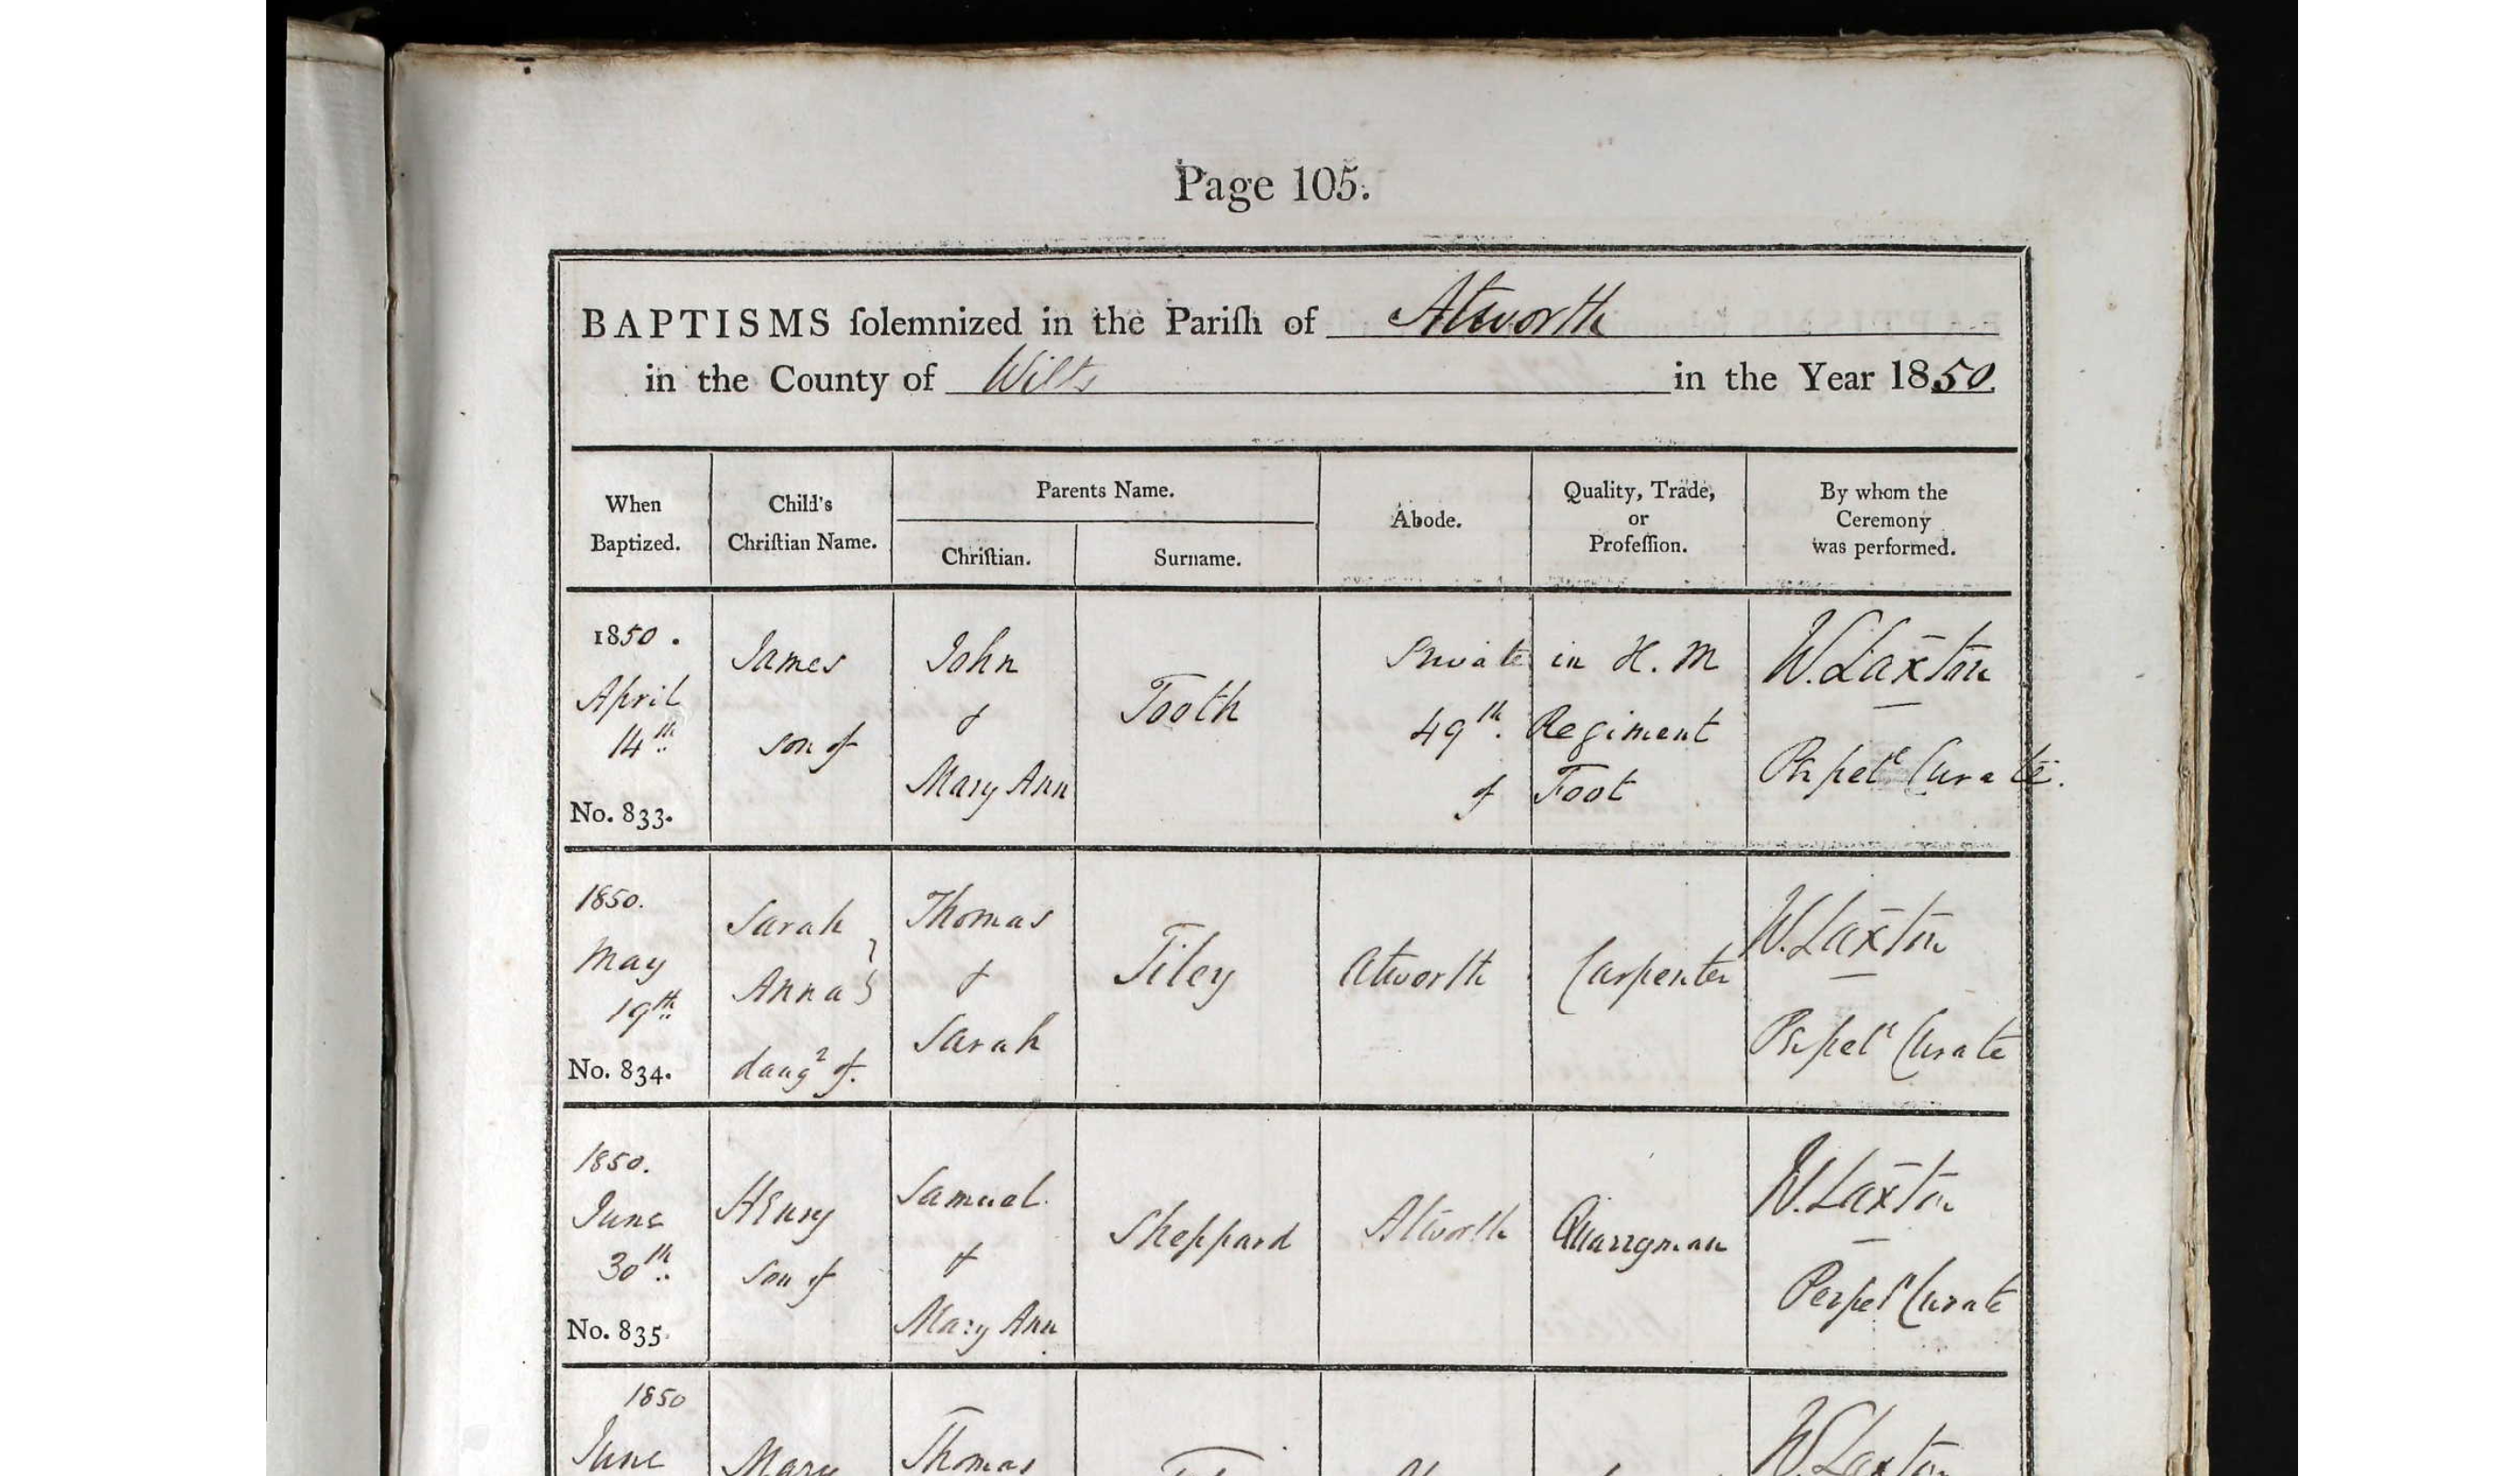 Page 105.
BAPTISMS ſolemnized in the Pariſh of Atworth
in the County of Wilts in the Year 1850.
When Baptized.
Child's Chriſtian Name.
Parents Name.
Chriſtian.
Surname.
Abode.
Quality, Trade, or Profeſſion.
By whom the Ceremony was performed.
1850.
April
14th
No. 833.
James
son of
John
&
Mary Ann
Tooth
Private in H. M
49th. Regiment
of Foot
W. Laxton
Perpetl Curate.
1850.
May
19th
No. 834.
Sarah
Anna
daugr of.
Thomas
&
Sarah
Tiley
Atworth
Carpenter
W. Laxton
Perpetl Curate
1850.
June
30th
No. 835.
Henry
son of
Samuel
&
Mary Ann
Sheppard
Atworth
Quarryman
W. Laxton
Perpetl Curate
1850
June
Mary
Thomas
W. Laxton